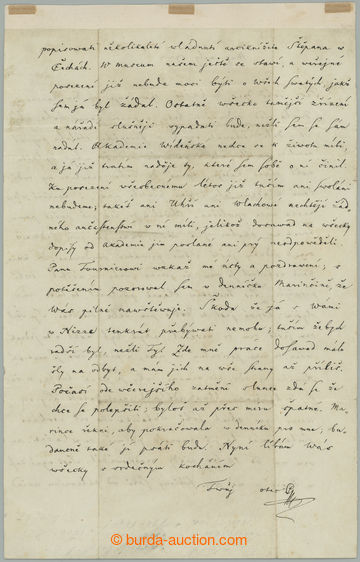 popisovati několikaletí vládnutí arciknížete Štěpána w
Čechách. W museum našem ještě se stawí, a weřejné
posezení již nebude moci býti o wšech swatých, jakž
sem já byl žádal. Ostatně wšecko tamější zřízení
a nářadí slušněji wypadati bude, nežli sem se sám
nadál. Akademie Wídeňská nechce se k životu míti,
a já již tratím naděje ty, které sem sobě o ní činil.
Ku posezení wšeobecnému letos již tuším ani swoláni
nebudeme; také ani Uhři ani Wlachowé nechtějí žád
ného účastenstwí w ní míti, jelikož dosawad na wšecky
dopisy od akademie jim poslané ani prý neodpowěděli.
Panu Fournierowi wzkaž mé úcty a pozdrawení; s
potěšením pozorowal sem w denníčku Marinčině, že
Wás pilně nawštěwuje. Škoda že já s Wámi
w Nizze tenkrát přebýwati nemohu; tuším že bych
radši byl, nežli Ty. Zde mně práce dosawad málo
šly na odbyt, a mám jich na wše strany až příliš.
Počasí ode wčerejšího zatmění slunce zdá se že
chce se polepšiti; bylo až přes míru špatné. Ma-
rince řekni, aby pokračowala w denníku pro mne; bu-
daucně také jí psáti budu. Nyní líbám Wás
wšecky s srdečným kocháním
Twůj otec
© burda-auction.com